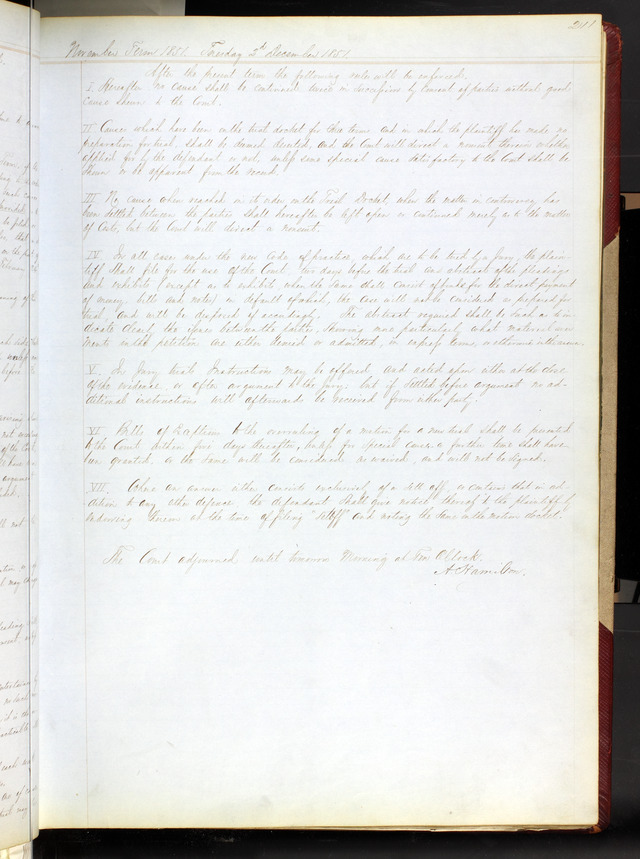 211
November Term 1851. Tuesday 2d December 1851.
After the present term the following rules will be enforced.
I. Hereafter no cause shall be continued twice in succession by consent of parties without good
cause shown to the Court.
II. Causes which have been on the trial docket for three terms and in which the plaintiff has made no
preparation for trial, shall be deemed deserted, and the Court will direct a nonsuit therein whether
applied for by the defendant or not, unless some special cause satisfactory to the Court shall be
shown or be apparent from the record.
III. No cause when reached in its order on the Trial Docket, when the matter in controversy has
been settled between the parties shall hereafter be left open or continued merely as to the matter
of Costs, but the Court will direct a nonsuit.
IV. In all cases under the new Code of practice, which are to be tried by a Jury, the plain-
tiff shall file for the use of the Court, two days before the trial an abstract of the pleadings
and exhibits (except as to exhibits when the same shall consist of bonds for the direct payment
of money, bills and notes) in default of which, the case will not be considered as prepared for
trial, and will be disposed of accordingly. The abstract required shall be such as to in-
dicate clearly the issues between the parties, showing more particularly what material aver-
ments in the petition are either denied or admitted, in express terms, or otherwise
V. In Jury trials Instructions may be offered and acted upon either at the close
of the evidence or after argument to the jury; but if settled before argument no ad-
ditional instructions will afterwards be received from either party.
VI. Bills of Exception to the overruling of a motion for a new trial shall be presented
to the Court within five days thereafter, unless for special cause a further time shall have
been granted, or the same will be considered as waived, and will not be signed.
VII. When an answer either consists exclusively of a set off, or contains that in ad-
dition to any other defence, the defendant shall give notice thereof to the plaintiff by
endorsing thereon at the time of filing "Setoff" and noting the same in the motion docket.
The Court adjourned until tomorrow Morning at Ten O'Clock.
A Hamilton